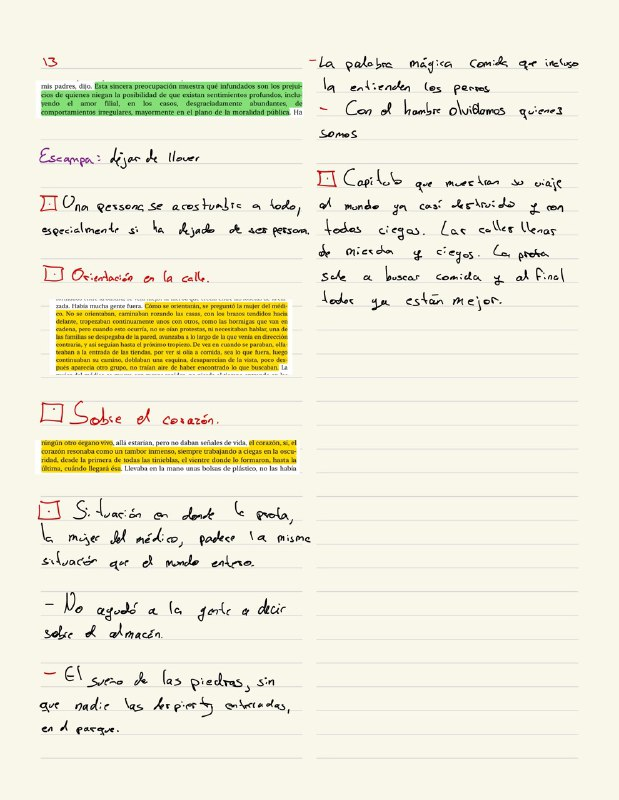 13
mis padres, dijo. Esta sincera preocupación muestra qué infundados son los prejui-
cios de quienes niegan la posibilidad de que existan sentimientos profundos, inclu-
yendo el amor filial, en los casos, desgraciadamente abundantes, de
comportamientos irregulares, mayormente en el plano de la moralidad pública. Ha
Escampa: dejar de llover
Una persona se acostumbra a todo,
especialmente si ha dejado de ser persona.
Orientación en la calle.
zada. Había mucha gente fuera. Cómo se orientarán, se preguntó la mujer del médi-
co. No se orientaban, caminaban rozando las casas, con los brazos tendidos hacia
delante, tropezaban continuamente unos con otros, como las hormigas que van en
cadena, pero cuando esto ocurría, no se oían protestas, ni necesitaban hablar, una de
las familias se despegaba de la pared, avanzaba a lo largo de la que venía en dirección
contraria, y así seguían hasta el próximo tropiezo. De vez en cuando se paraban, olfa-
teaban a la entrada de las tiendas, por ver si olía a comida, sea lo que fuera, luego
continuaban su camino, doblaban una esquina, desaparecían de la vista, poco des-
pués aparecía otro grupo, no traían aire de haber encontrado lo que buscaban. La
Sobre el corazón.
ningún otro órgano vivo, allá estarían, pero no daban señales de vida, el corazón, sí, el
corazón resonaba como un tambor inmenso, siempre trabajando a ciegas en la oscu-
ridad, desde la primera de todas las tinieblas, el vientre donde lo formaron, hasta la
última, cuándo llegará ésa. Llevaba en la mano unas bolsas de plástico, no las había
Situación en donde la prota,
la mujer del médico, padece la misma
situación que el mundo entero.
- No ayudó a la gente a decir
sobre el almacén.
- El sueño de las piedras, sin
que nadie las despierte enterradas,
en el parque.
- La palabra mágica comida que incluso
la entienden los perros
- Con el hambre olvidamos quienes
somos
Capítulo que muestran su viaje
al mundo ya casi destruido y con
todos ciegos. Las calles llenas
de mierda y ciegos. La prota
sale a buscar comida y al final
todos ya están mejor.